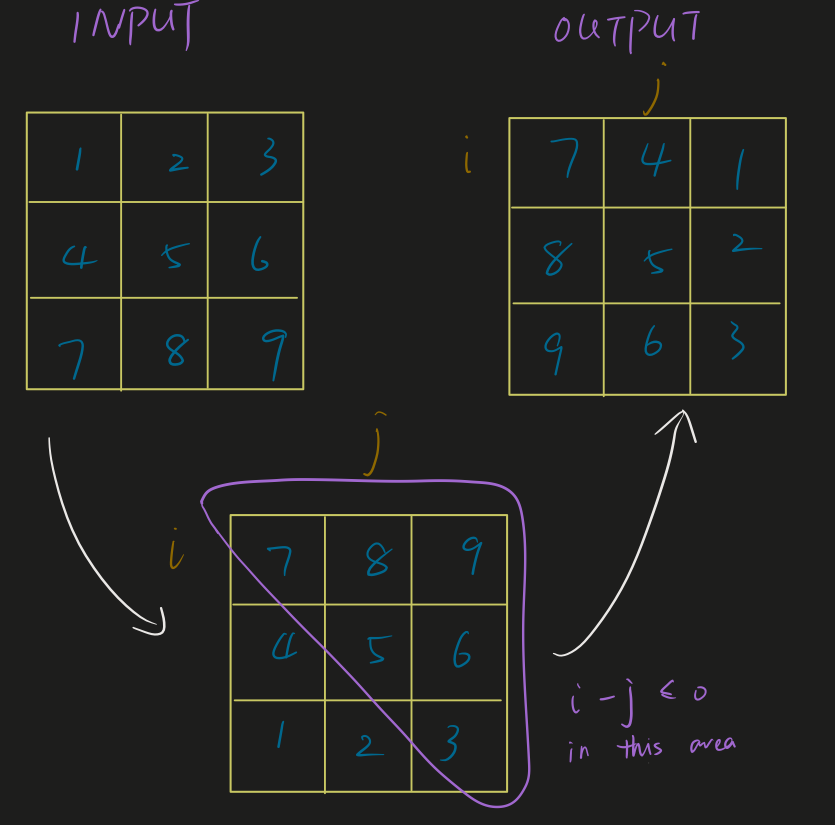 INPUT
1 2 3
4 5 6
7 8 9
OUTPUT
j
i
7 4 1
8 5 2
9 6 3
j
i
7 8 9
4 5 6
1 2 3
i - j ≤ 0
in this area